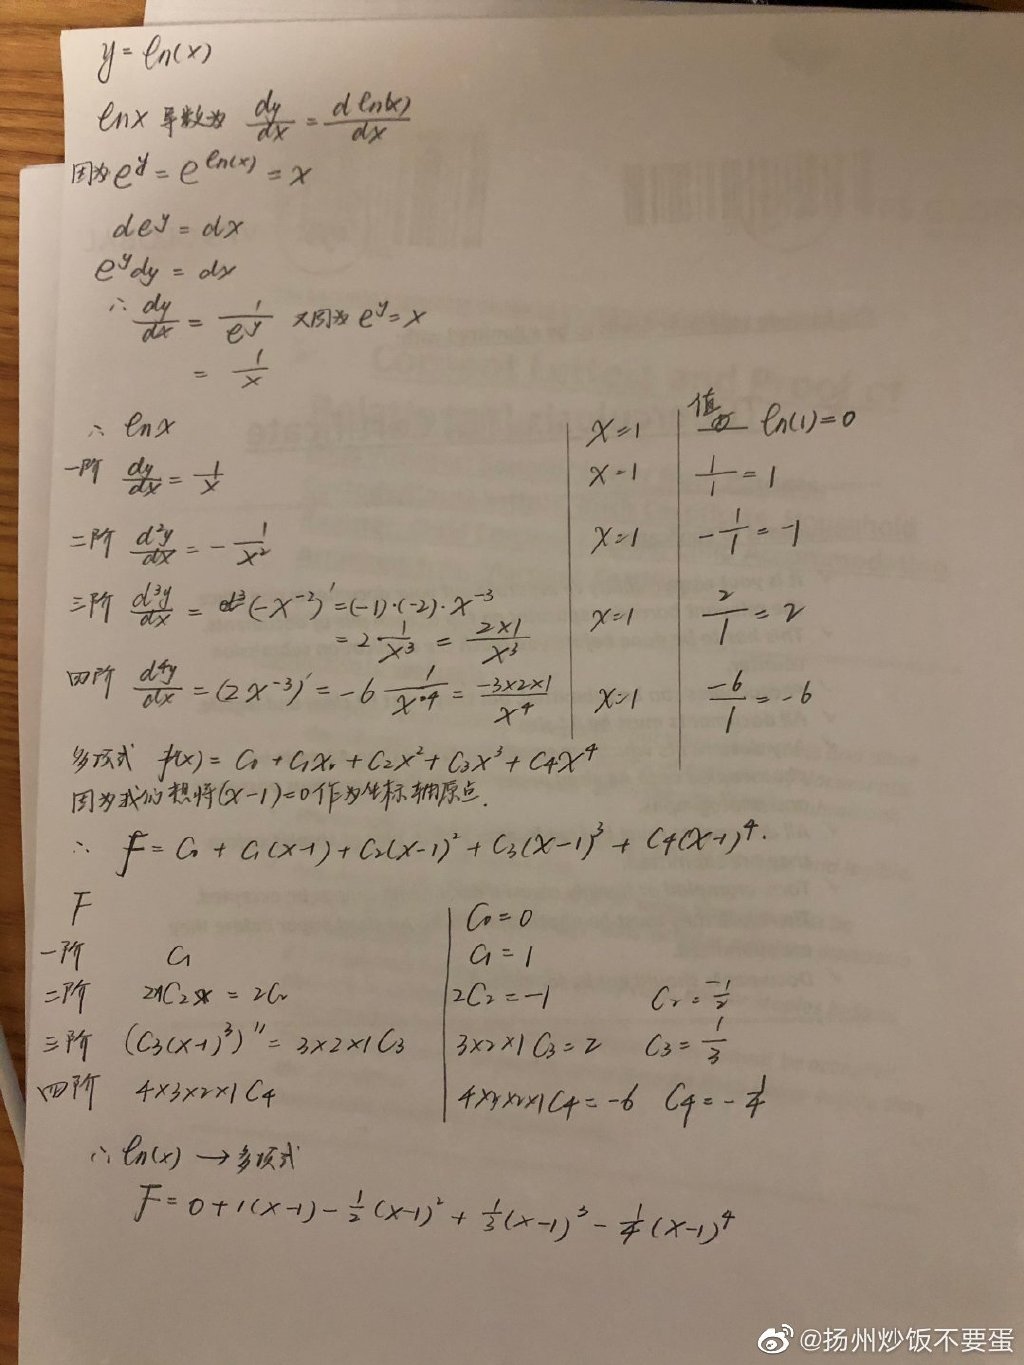 y = ln(x)
lnx 导数为 dy/dx = d ln(x)/dx
因为 e^y = e^ln(x) = x
de^y = dx
e^y dy = dx
∴ dy/dx = 1/e^y 又因为 e^y = x
= 1/x
∴ lnx | x=1 | 值 ln(1)=0
一阶 dy/dx = 1/x | x=1 | 1/1 = 1
二阶 d²y/dx = - 1/x² | x=1 | -1/1 = -1
三阶 d³y/dx = (-x^-2)' = (-1)·(-2)·x^-3 | x=1 | 2/1 = 2
= 2·1/x³ = 2×1/x³
四阶 d⁴y/dx = (2x^-3)' = -6 1/x⁴ = -3×2×1/x⁴ | x=1 | -6/1 = -6
多项式 f(x) = C₀ + C₁x + C₂x² + C₃x³ + C₄x⁴
因为我们想将(x-1)=0作为坐标轴原点.
∴ F = C₀ + C₁(x-1) + C₂(x-1)² + C₃(x-1)³ + C₄(x-1)⁴.
F | C₀ = 0
一阶 C₁ | C₁ = 1
二阶 2×1C₂ = 2C₂ | 2C₂ = -1 C₂ = -1/2
三阶 (C₃(x-1)³)''' = 3×2×1C₃ | 3×2×1C₃ = 2 C₃ = 1/3
四阶 4×3×2×1C₄ | 4×3×2×1C₄ = -6 C₄ = -1/4
∴ ln(x) → 多项式
F = 0 + 1(x-1) - 1/2(x-1)² + 1/3(x-1)³ - 1/4(x-1)⁴
@扬州炒饭不要蛋